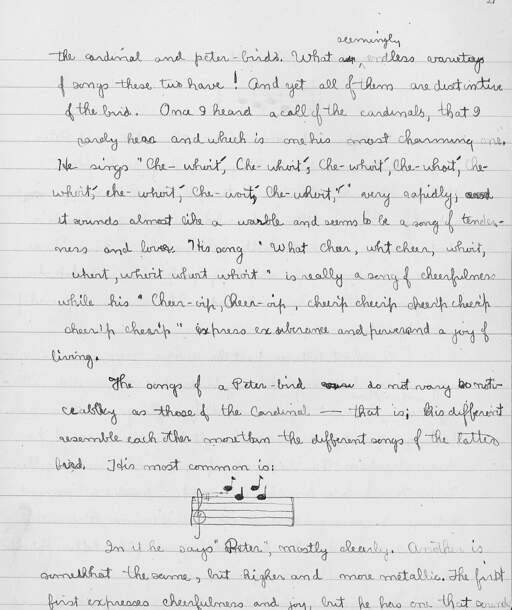 21
seemingly
the cardinal and peter-birds. What an endless varietys
of songs these two have! And yet all of them are distinctive
of the bird. Once I heard a call of the cardinals, that I
rarely hear and which is one his most charming one.
He sings "Che-whoit, Che-whoit, Che-whoit, Che-whoit, Che-
whoit, che-whoit, Che-whoit, Che-whoit," very rapidly,
it sounds almost like a warble and seems to be a song of tender-
ness and love. His song "What cheer, whit cheer, whoit,
whoit, whoit whoit whoit" is really a song of cheerfulness
while his "Cheer-ip, Cheer-ip, cheerip cheerip cheerip cheerip
cheerip cheerip" express exuberance and power and a joy of
living.
The songs of a Peter-bird do not vary so noti-
ceabley as those of the Cardinal — that is, his different
resemble each other more than the different songs of the latter
bird. His most common is:
In it he says "Peter", mostly clearly. Another is
somewhat the same, but higher and more metallic. The first
first expresses cheerfulness and joy, but he has one that sounds